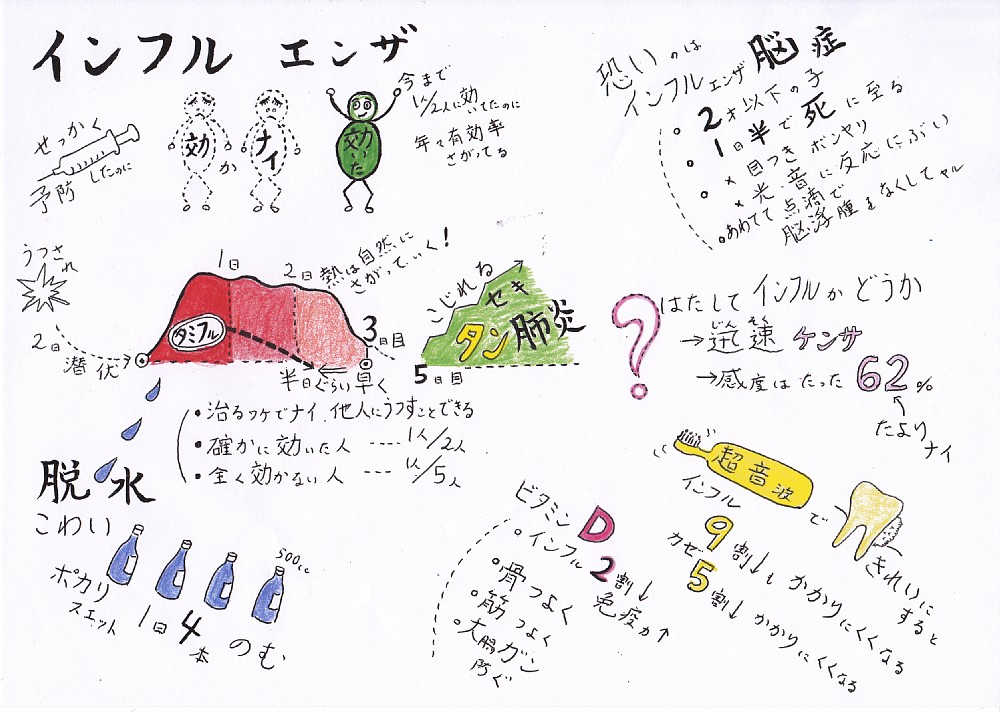 インフル エンザ
せっかく
予防 したのに
効 か ナイ
効いた
今まで
1人/2人に効いてたのに
年々有効率
さがってる
恐いのは
インフルエンザ脳症
・2才以下の子
・1日半で死に至る
・×目つきボンヤリ
×光、音に反応にぶい
・あわてて点滴で
脳浮腫をなくしてヤル
うつされ
2日
潜伏
1日
2日
熱は自然に
さがっていく!
タミフル
3日目
半日ぐらい早く
・治るワケでナイ、他人にうつすことできる
・確かに効いた人 ---- 1人/2人
・全く効かない人 --- 1人/5人
こじれね
セキ
タン肺炎
5日目
?はたしてインフルかどうか
じんそく
→迅速ケンサ
→感度はたった62%
たよりナイ
脱水
こわい
500cc
ポカリ
スエット
1日4本のむ
ビタミンD
・インフル2割↓
免疫力↑
・骨つよく
・筋つよく
・大腸ガン
防ぐ
超音波で
きれいにすると
インフル
9割↓もかかりにくくなる
カゼ
5割↓かかりにくくなる